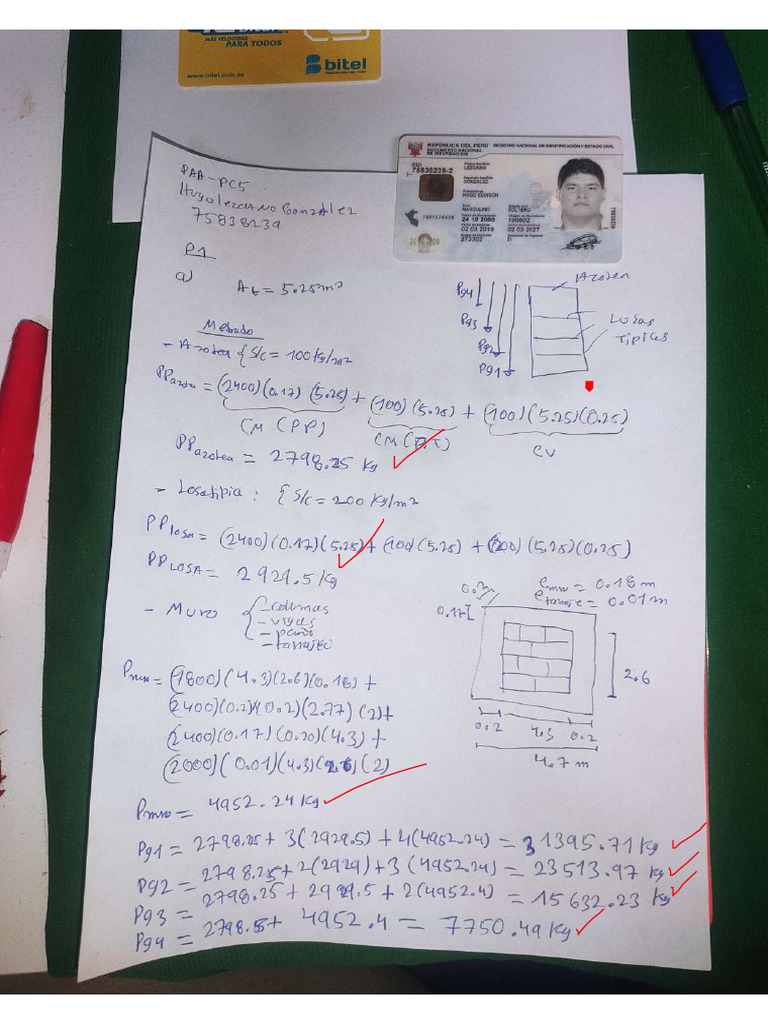 BITEL
MÁS VELOCIDAD
PARA TODOS
www.bitel.com.pe
bitel
REPÚBLICA DEL PERÚ REGISTRO NACIONAL DE IDENTIFICACIÓN Y ESTADO CIVIL
DOCUMENTO NACIONAL
DE IDENTIDAD DNI
CUI
Primer Apellido
LEZCANO
Segundo Apellido
GONZALEZ
HUGO EDINSON
MASCULINO SOLTERO
24 10 2000 190602
02 03 2019 02 03 2027
273302
PAA-PC5
Hugo Lezcano Gonzalez
75838239
P1
a) At = 5.25m2
Azotea
Pg4
Pg3
Pg2
Pg1
Losas
Tipicas
Metrado
- Azotea { S/c = 100 kg/m2
PPazotea = (2400)(0.17)(5.25) + (100)(5.25) + (100)(5.25)(0.25)
CM (PP) CM (P.T) CV
PPazotea = 2798.25 kg
- Losa tipia: { S/c = 200 kg/m2
PPlosa = (2400)(0.17)(5.25) + (100)(5.25) + (200)(5.25)(0.25)
PPLOSA = 2929.5 kg
- Muro { - columas
- vigas
- paño
- tarrajeo
emuro = 0.18 m
etarraje = 0.01 m
0.17
2.6
0.2 4.3 0.2
4.7 m
Pmuro = (1800)(4.3)(2.6)(0.18) +
(2400)(0.2)(0.2)(2.77)(2) +
(2400)(0.17)(0.20)(4.3) +
(2000)(0.01)(4.3)(2.6)(2)
Pmuro = 4952.24 kg
Pg1 = 2798.25 + 3(2929.5) + 4(4952.24) = 31395.71 kg
Pg2 = 2798.25 + 2(2929) + 3(4952.24) = 23513.97 kg
Pg3 = 2798.25 + 2929.5 + 2(4952.4) = 15632.23 kg
Pg4 = 2798.5 + 4952.4 = 7750.49 kg